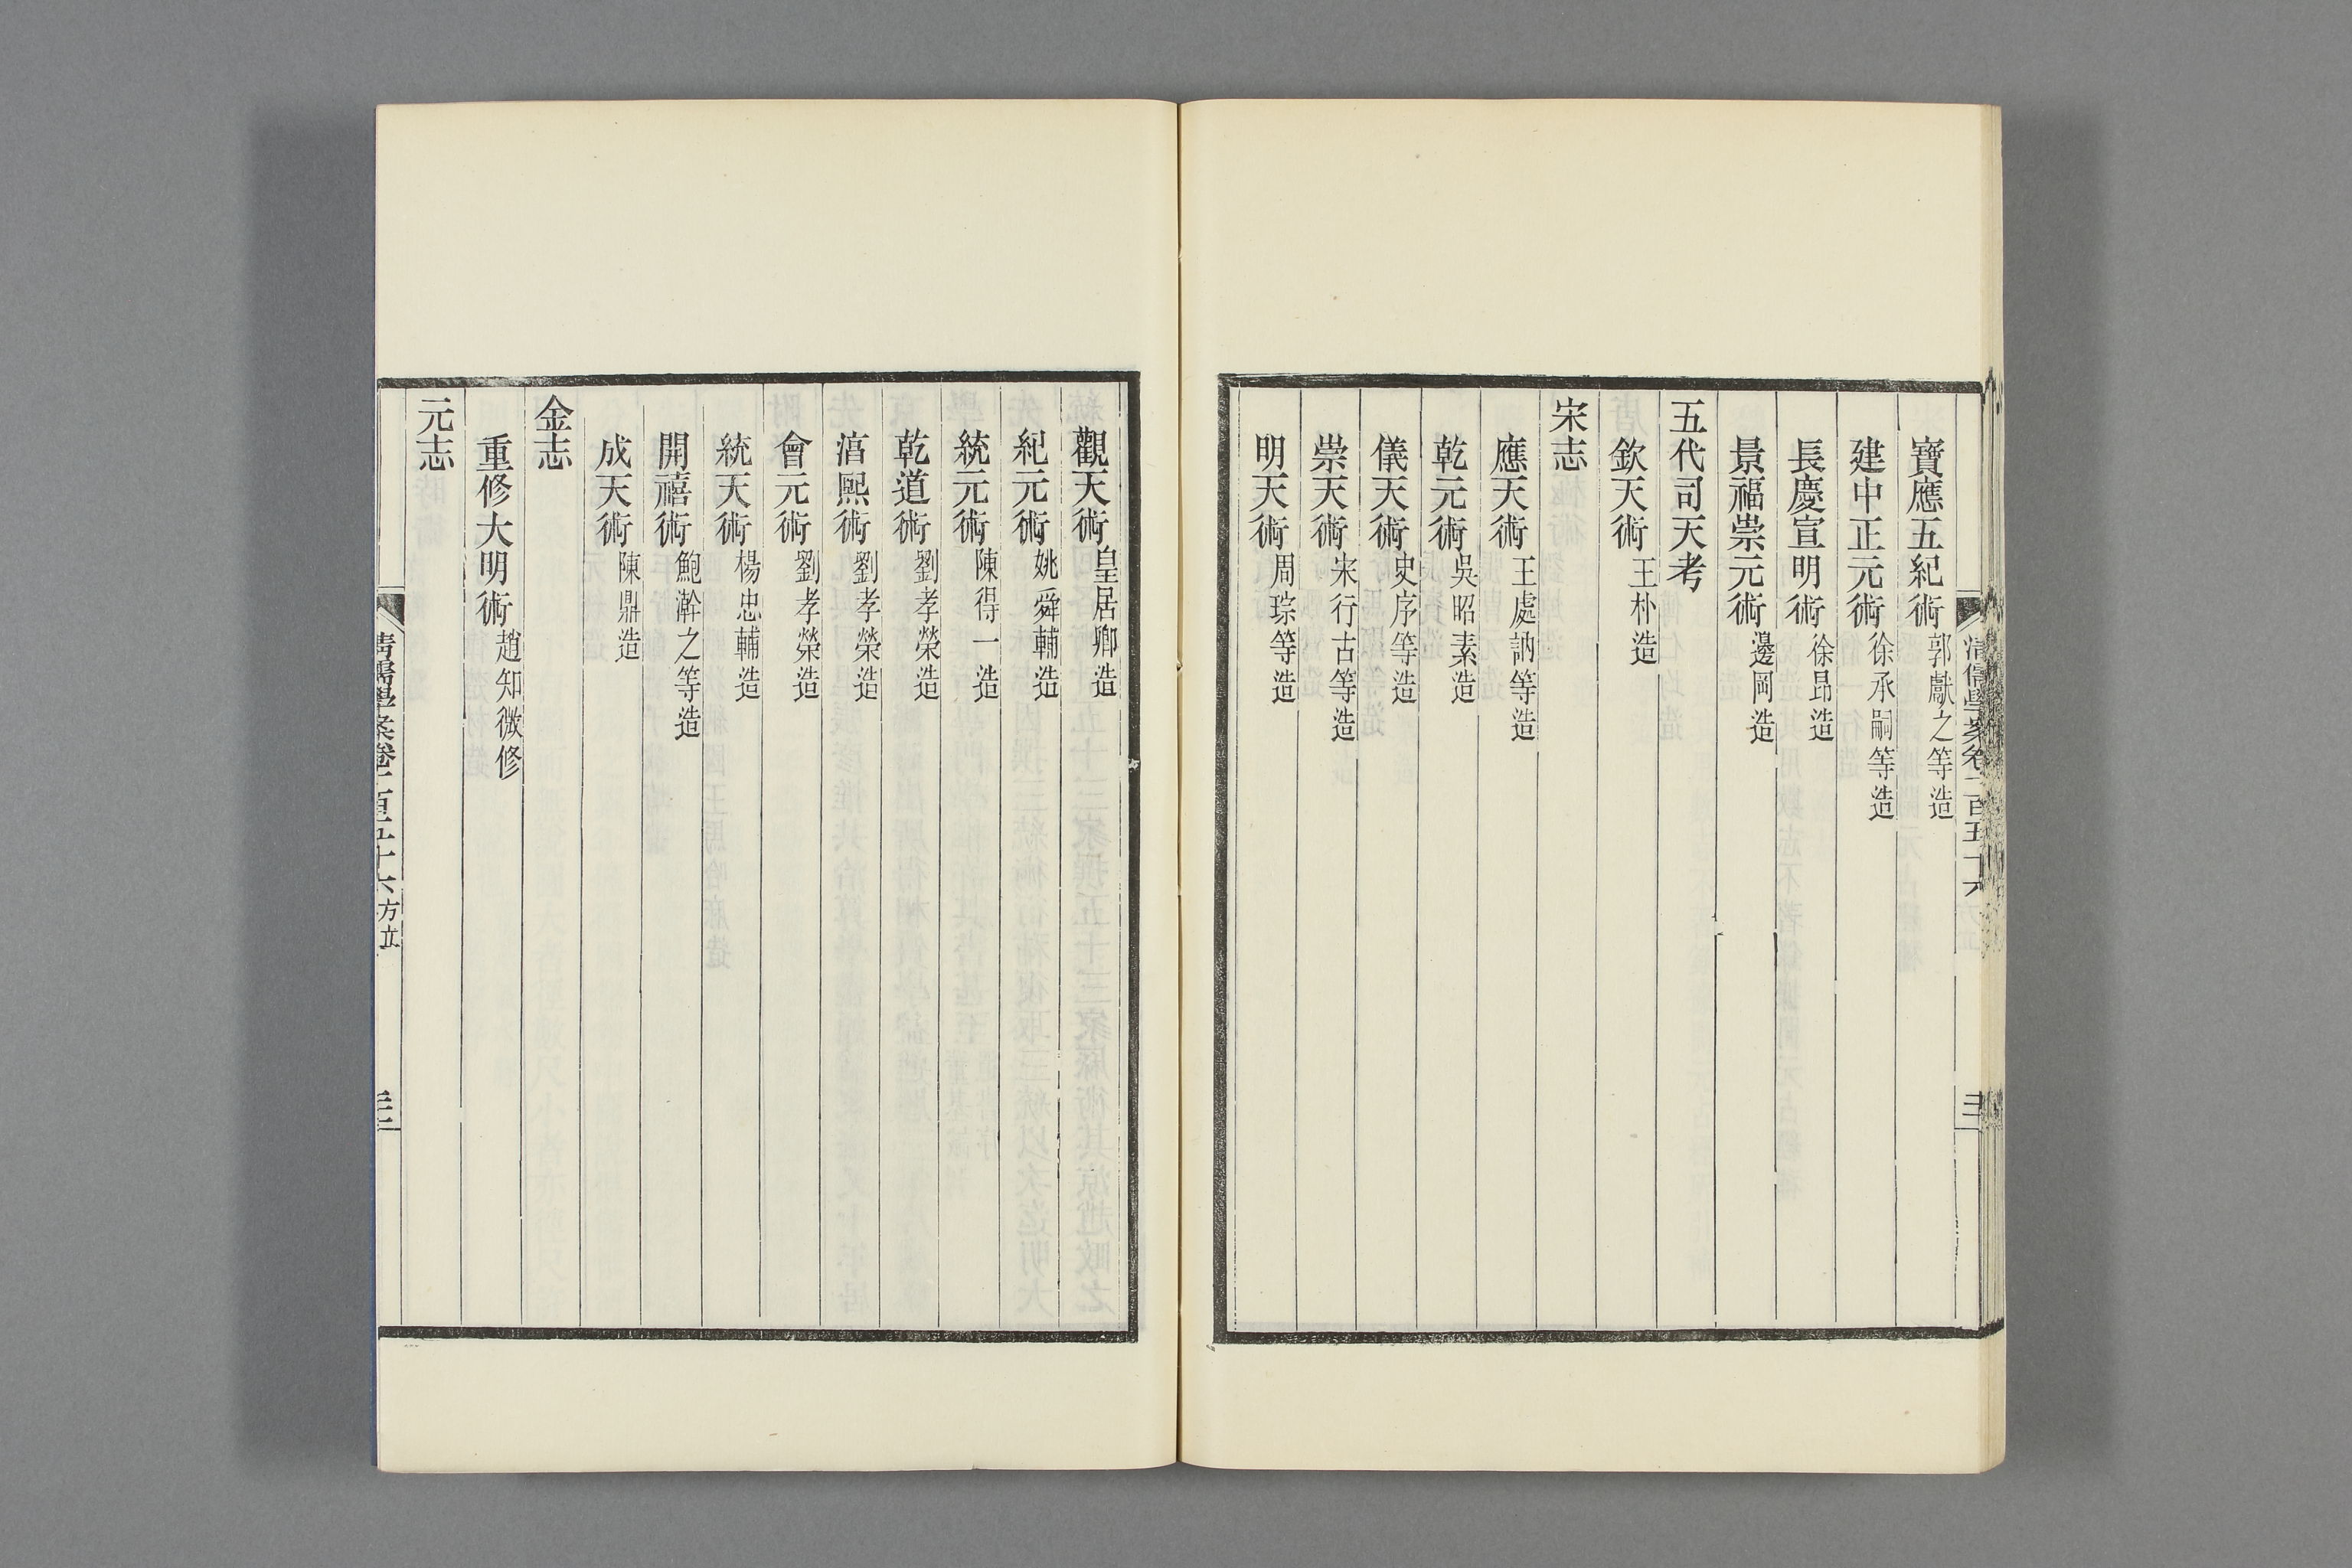 寶應五紀術郭獻之等造
建中正元術徐承嗣等造
長慶宣明術徐昻造
景福崇元術邊岡造
五代司天考
欽天術王朴造
宋志
應天術王處訥等造
乾元術吳昭素造
儀天術史序等造
崇天術宋行古等造
明天術周琮等造
觀天術皇居卿造
紀元術姚舜輔造
統元術陳得一造
乾道術劉孝榮造
湻熙術劉孝榮造
會元術劉孝榮造
統天術楊忠輔造
開禧術鮑澣之等造
成天術陳鼎造
金志
重修大明術趙知微修
元志
清儒學案卷二百五十六方立